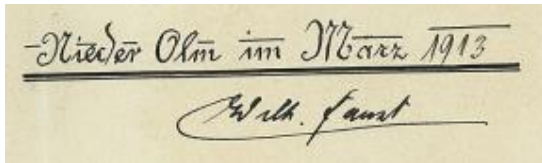 Nieder Olm im März 1913
Wilh. Faust